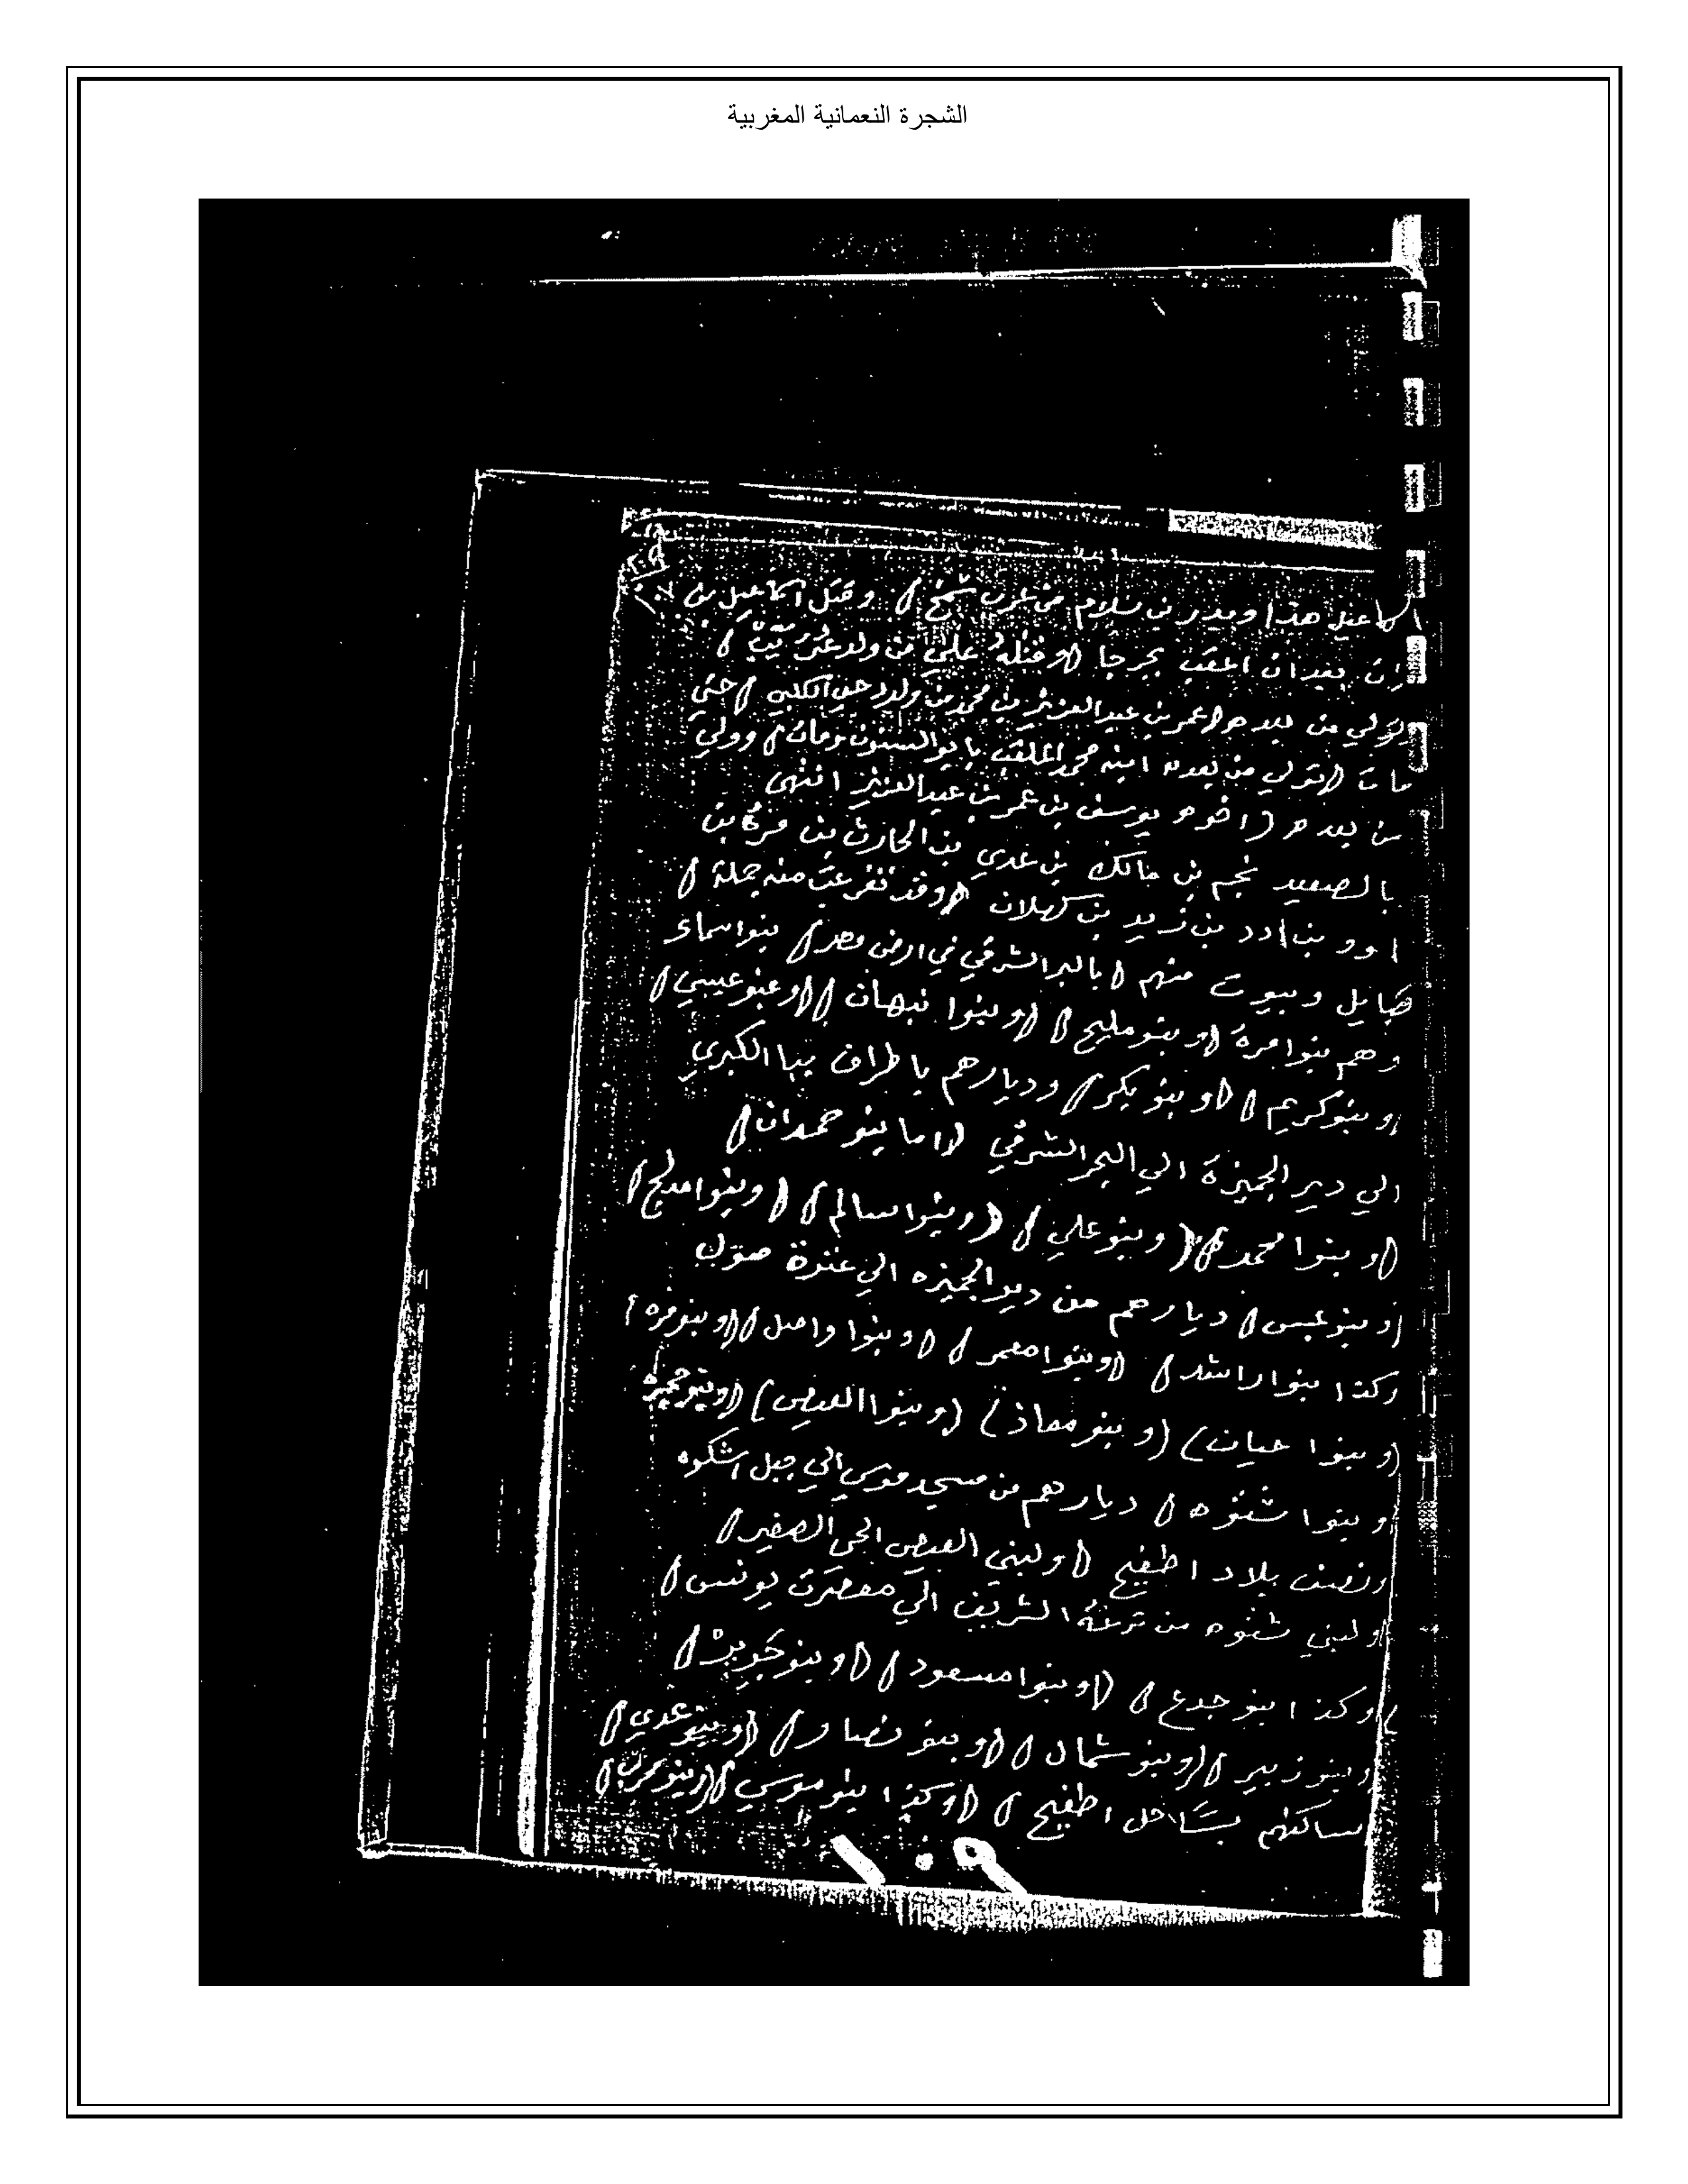 الشجرة النعمانية المغربية
هذا وبدر بن سلام من عرب وقتل اسماعيل بن
بعد ان بجرجا (وقتله علي من ولد
تولي من بعده (عمر بن عبد العزيز بن محمد من ولد حتي
مات (تولي من بعده ابنه محمد الملقب بابو السنون زمان) وولي
من بعده (اخوه يوسف بن عمر بن عبد العزيز انتهى
بالصعيد بن مالك بن عدي بن الحارث بن مرة بن
ادد بن زيد بن كهلان (وقد تفرعت منه جملة)
قبايل وبيوت منهم (بالبر الشرقي في ارض مصر) بنوا سماك
وهم بنوا مرة (وبنو مليح) (وبنوا نبهان) (وبنو عبسي)
(وبنو كريم) (وبنو بكر) وديارهم باطراف ببا الكبري
الي دير الجميزة الي البحر الشرقي (اما بنو حمدان)
(وبنوا محمد) (وبنو علي) (وبنوا سالم) (وبنوا مدلج)
(وبنو عبس) ديارهم من دير الجميزه الي صول
وكذا بنوا راشد) (وبنوا معمر) (وبنوا واصل) (وبنو مره)
(وبنوا حبان) (وبنو معاذ) (وبنوا البيض)
(وبنوا شنوه) ديارهم من مسجد موسي الي جبل
ونصف بلاد اطفيح (ولبني البيض الحي الصغير)
(ولبني شنوه من ترعة الشريف الي معصرت يونس)
(وكذا بنو جدع) (وبنوا مسعود) (وبنو
(وبنو زبير) (وبنو شمال) (وبنو نصار) (وبنو عدي)
مساكنهم بساحل اطفيح) (وكذا بنو موسي) (وبنو محرب)
١٠٩